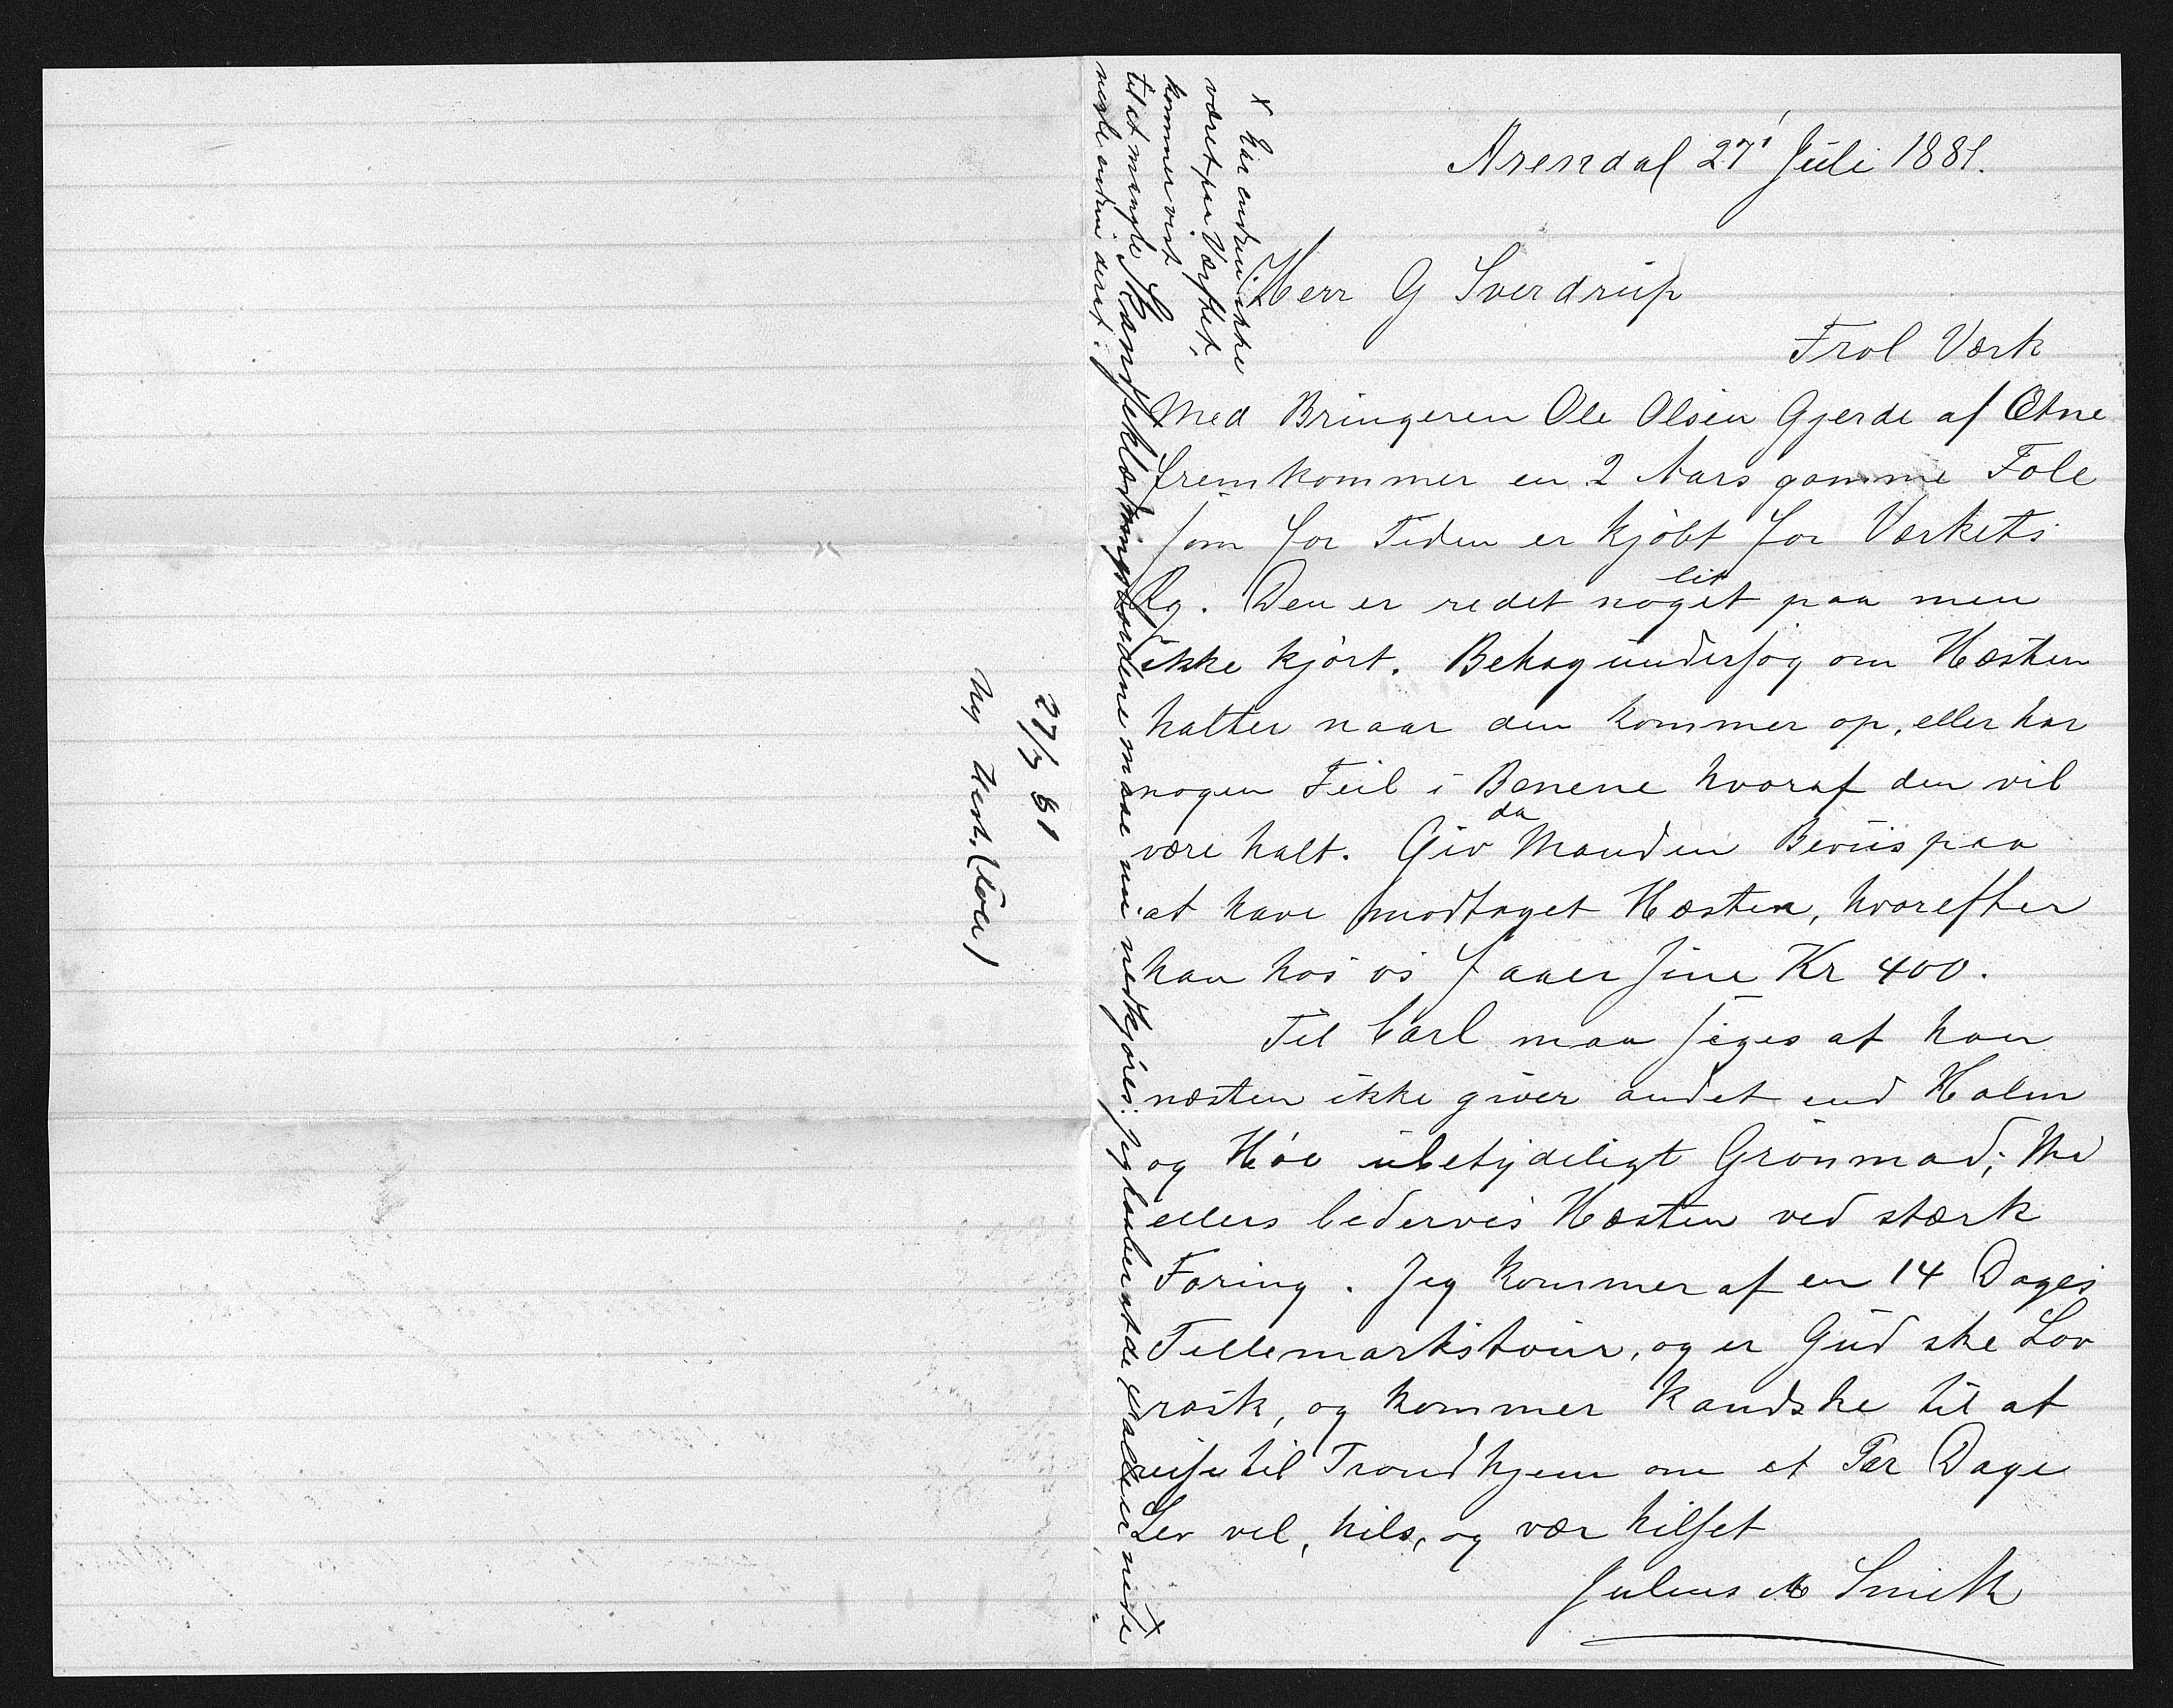 Arendal 27' Juli 1881.
Herr G Sverdrup
Frol Værk
Med Bringeren Ole Olsen Gjerde af Etne
fremkommer en 2 Aars gamme Fole
som for Tiden er kjöbt for Værkets
Rg. Den er redet noget lit paa men
ikke kjört. Behag undersög om Hæsten
halter naar den kommer op, eller har
nogen Feil i Benene hvoraf den vil
være halt. Giv da Manden Beviis paa
at have modtaget Hæsten, hvorefter
han hos os faaer sine Kr 400.
Til Carl maa siges at han
næsten ikke giver andet end Halm
og Höe ubetydeligt Grönmad;
ellers bederves Hæsten ved stærk
Foring. Jeg kommer af en 14 Dages
Tellemarkstour, og er Gud ske Lov
rask, og kommer kandske til at
reise til Trondhjem om et Par Dage
Lev vel, hils, og vær hilset
Julius M Smith
Skandseklædningsbordene maae nu nedkjöres. Jeg haaber at de x alle er nede
x har endnu ikke
været paa Værftet,
kommer vist
til at mangle
nogle endnu deraf.
27/7 81
Ny Hest. (Voca)